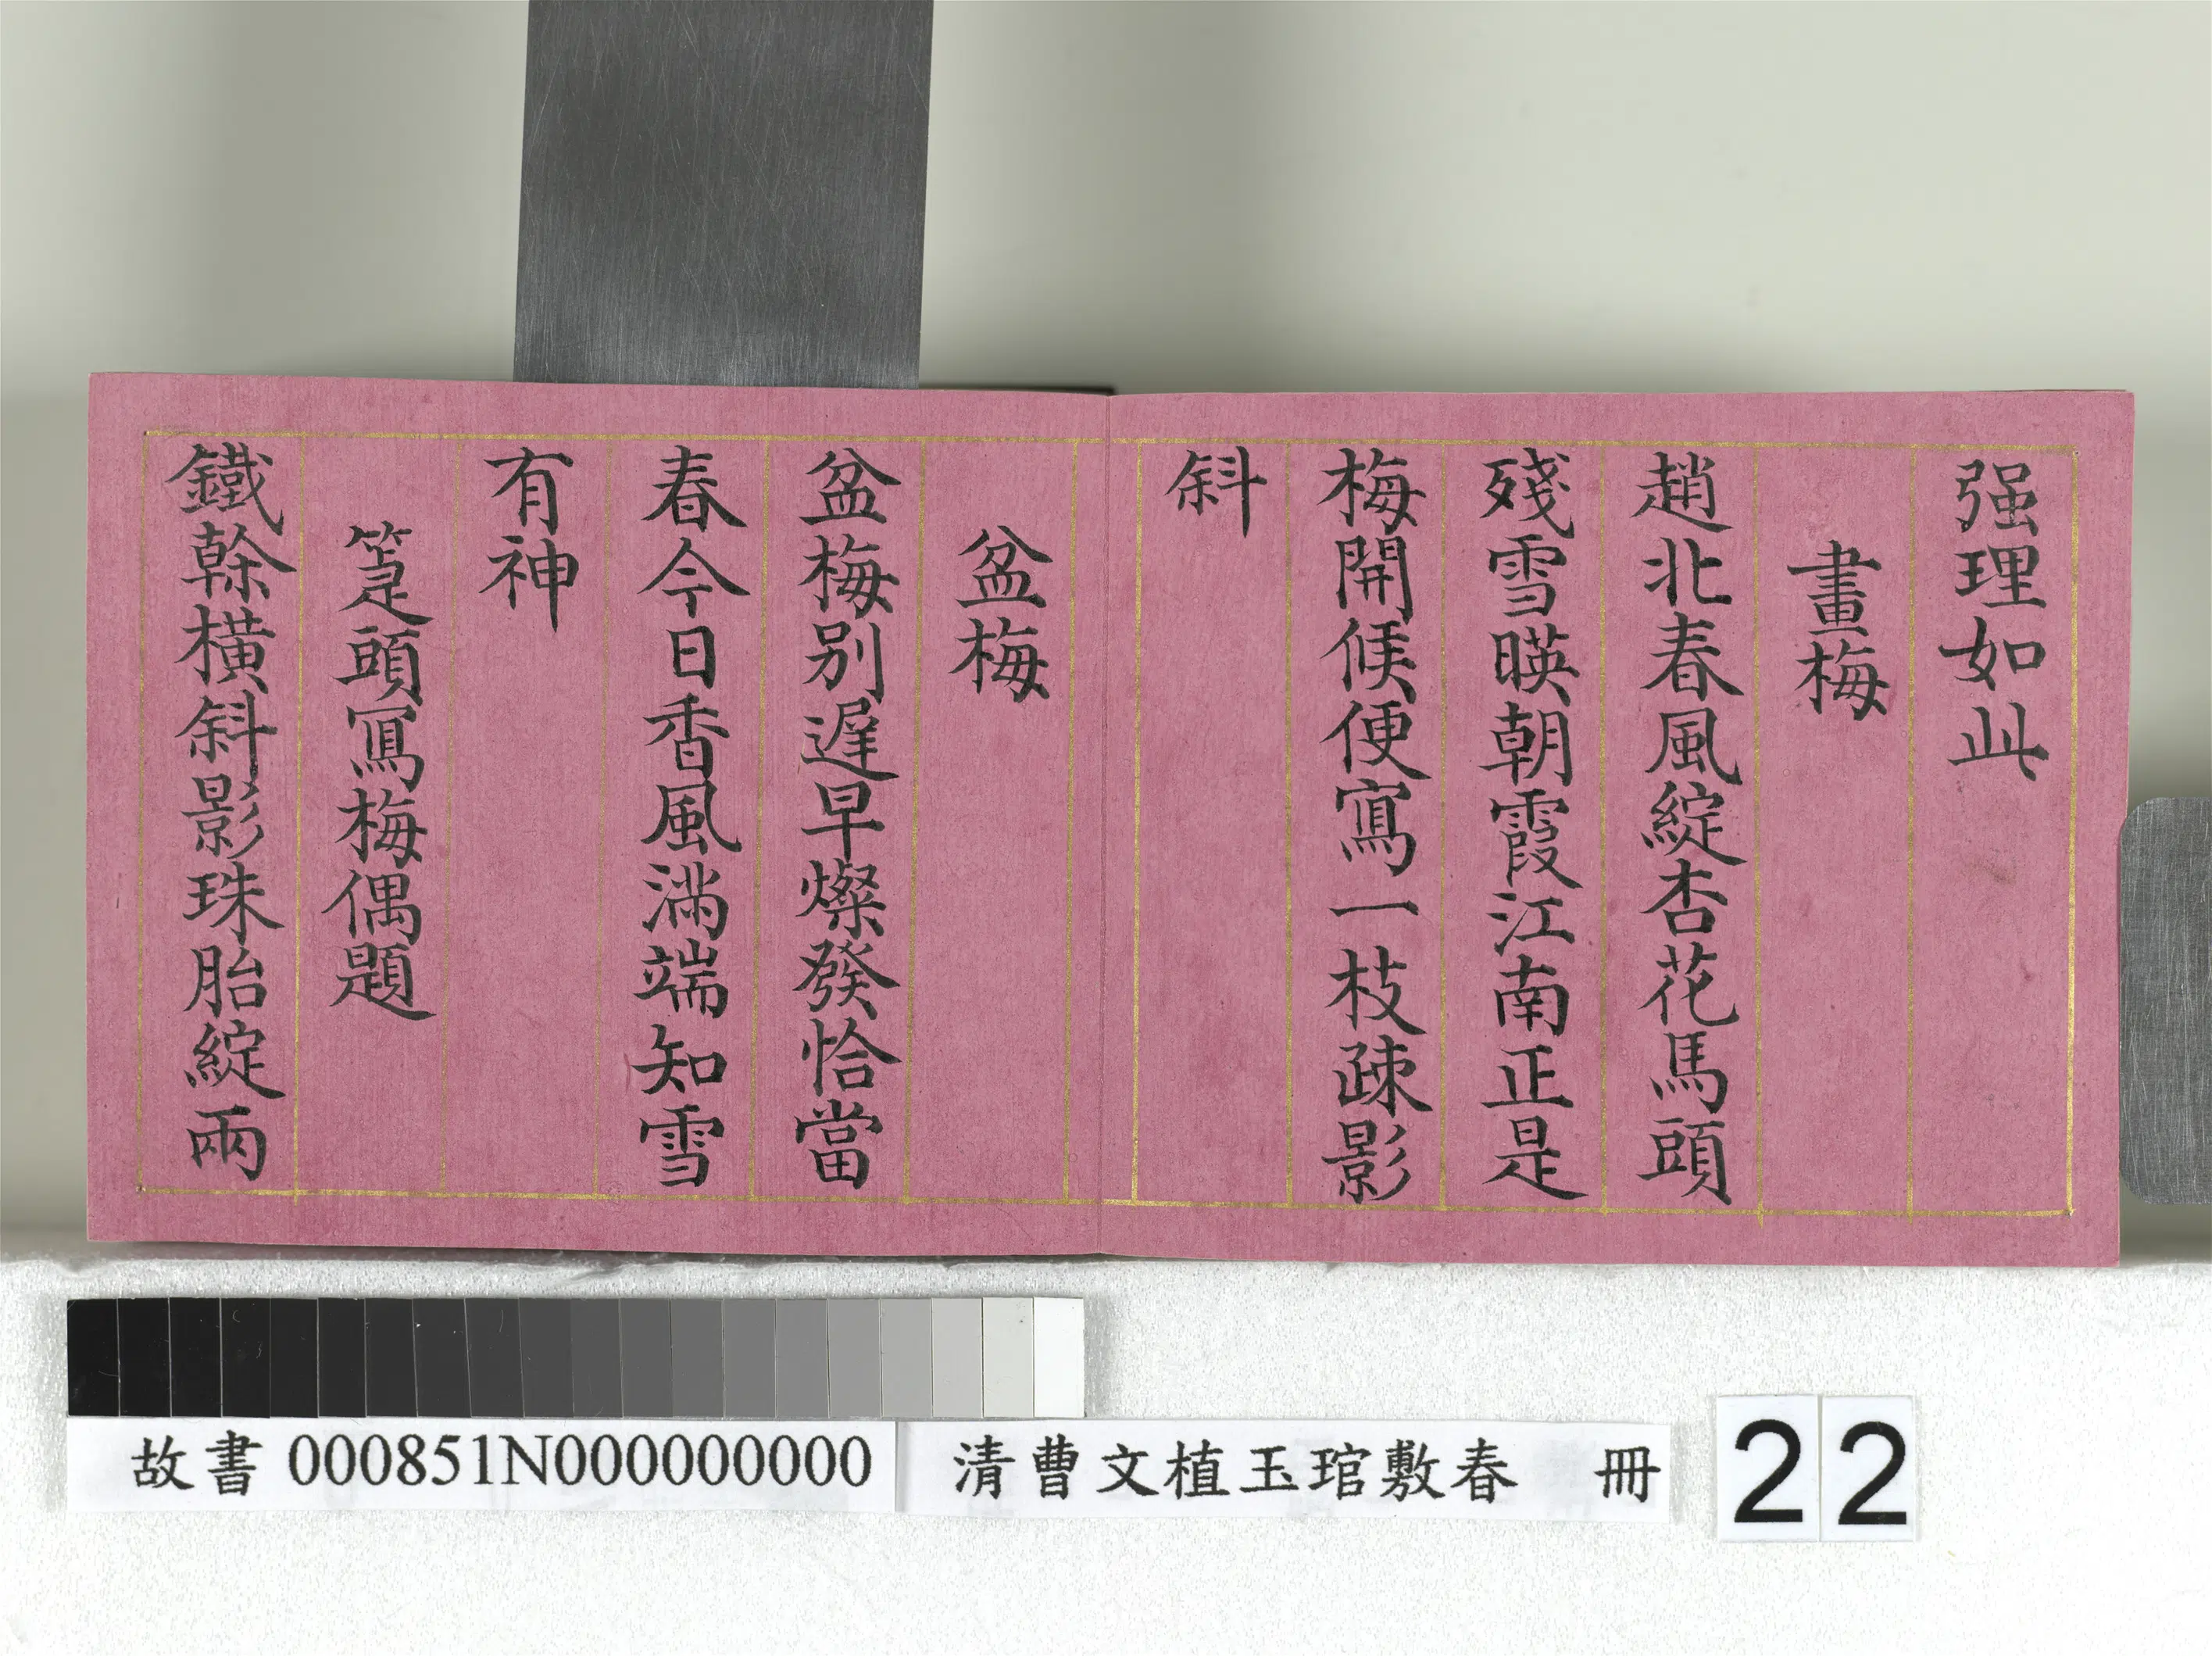 强理如此
畫梅
趙北春風綻杏花馬頭
殘雪暎朝霞江南正是
梅開候便寫一枝疎影
斜
盆梅
盆梅別遲早燦發恰當
春今日香風滿端知雪
有神
箑頭寫梅偶題
鐵榦橫斜影珠胎綻兩
故書 000851N000000000
清曹文植玉琯敷春 冊
22